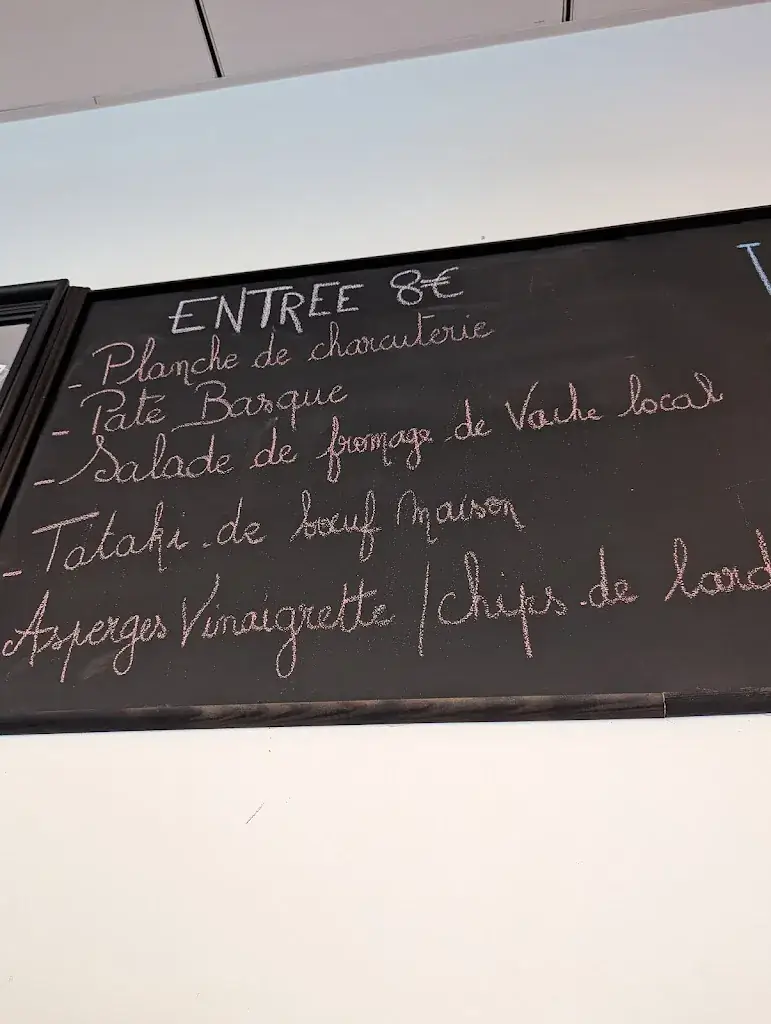 ENTREE 8€
- Planche de charcuterie
- Paté Basque
- Salade de fromage de Vache local
- Tataki de bœuf Maison
Asperges Vinaigrette / chips de lard